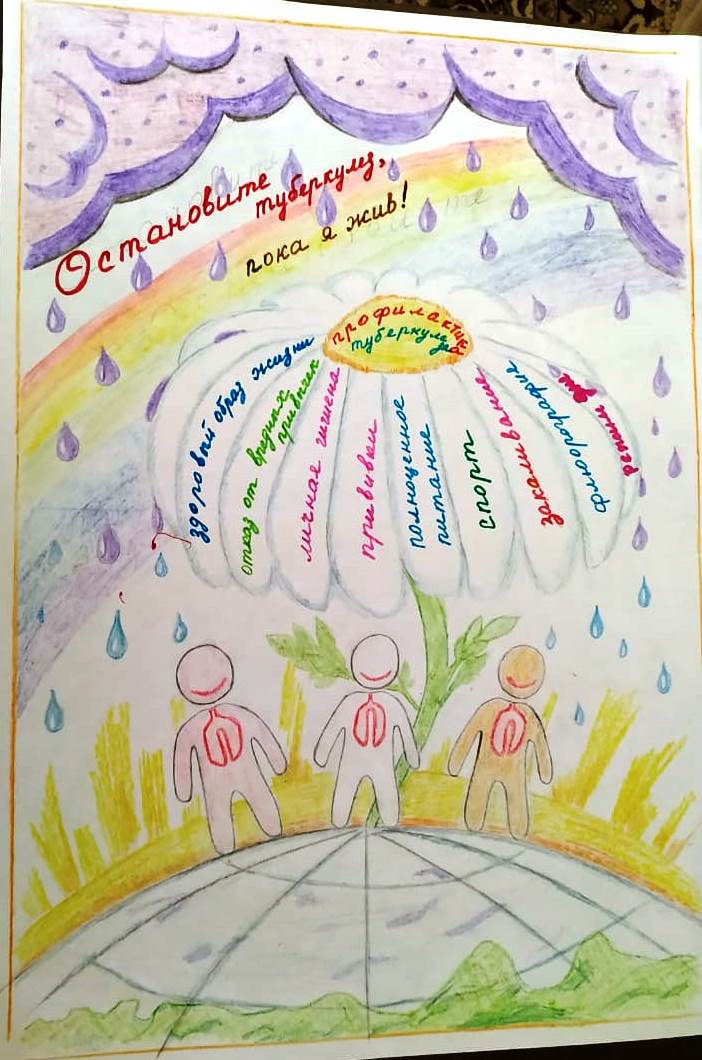 Остановите
туберкулез,
пока я жив!
профилактика
туберкулеза
здоровый образ жизни
отказ от вредных
привычек
личная гигиена
прививки
полноценное
питание
спорт
закаливание
флюорография
режим дня